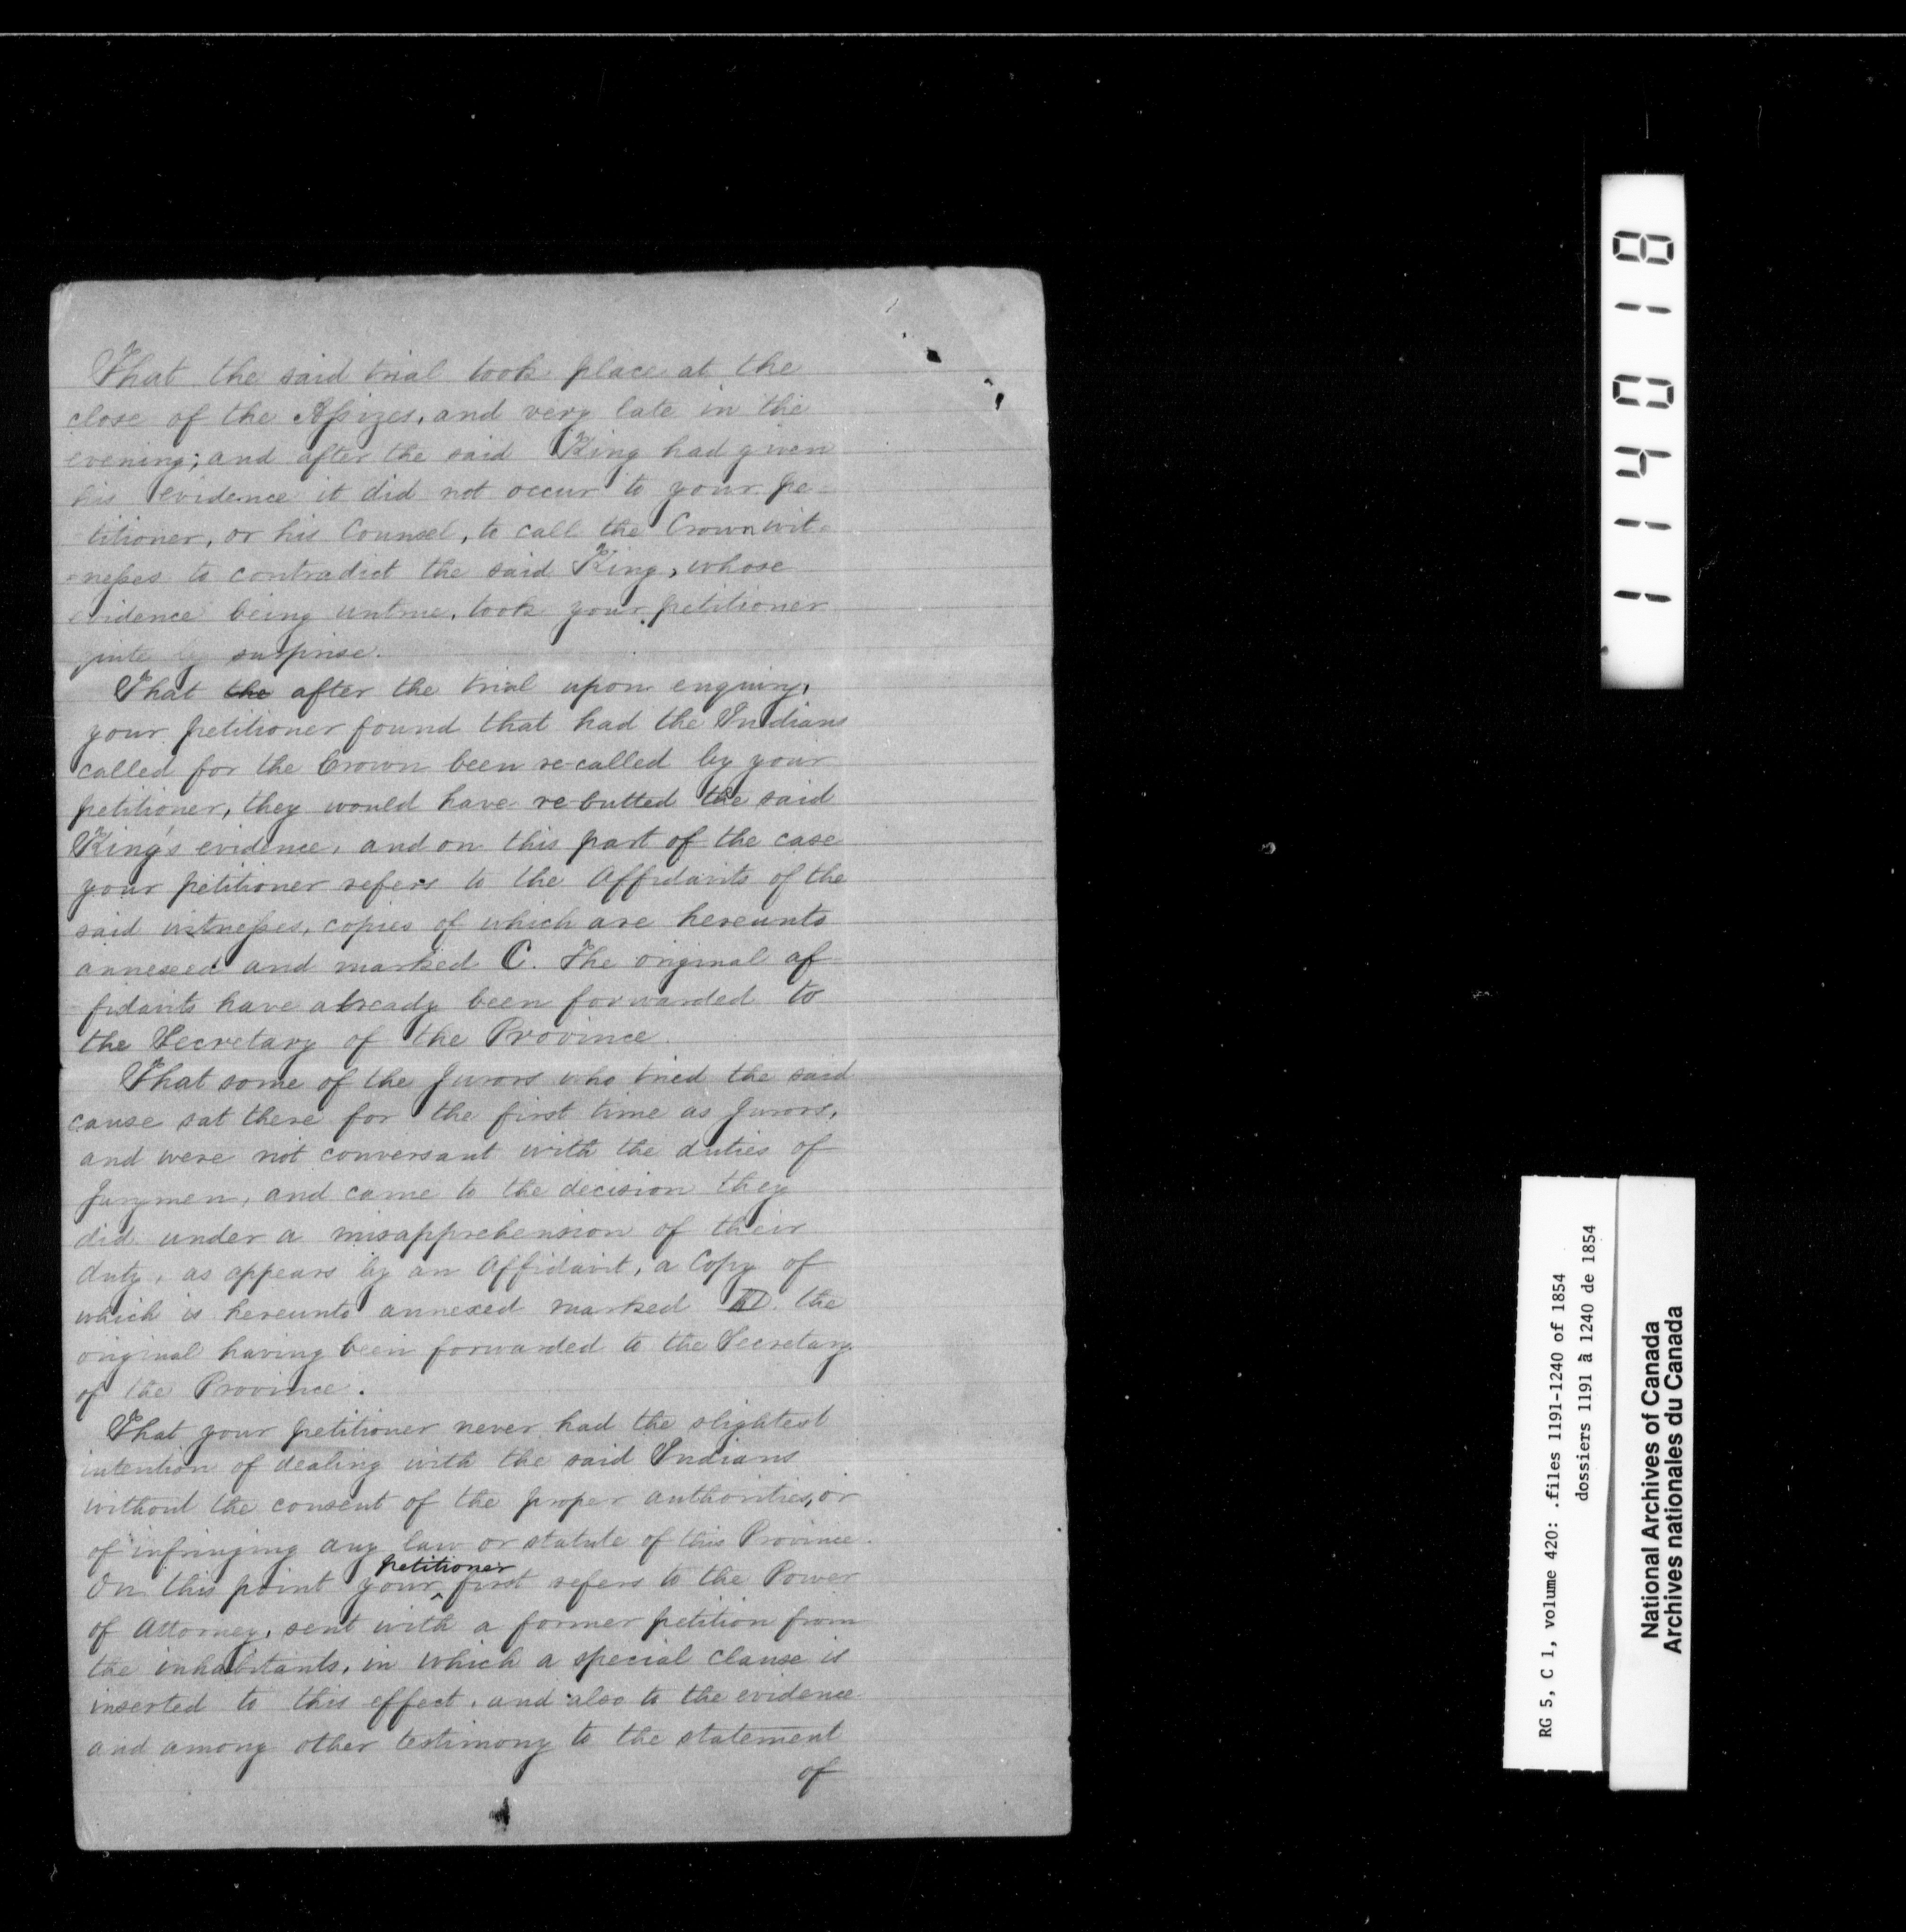 That the said trial took place at the
close of the Assizes, and very late in the
evening; and after the said King had given
his evidence it did not occur to your pe-
titioner, or his Counsel, to call the Crown wit-
-nesses to contradict the said King, whose
evidence being untrue, took your petitioner
quite by surprise.
That the after the trial upon enquiry,
your petitioner found that had the Indians
called for the Crown been re-called by your
petitioner, they would have re-butted the said
King's evidence, and on this part of the case
your petitioner refers to the Affidavits of the
said witnesses, copies of which are hereunto
annexed and marked C. The original af-
fidavits have already been forwarded to
the Secretary of the Province.
That some of the Jurors who tried the said
cause sat there for the first time as Jurors,
and were not conversant with the duties of
Jurymen, and came to the decision they
did under a misapprehension of their
duty, as appears by an Affidavit, a Copy of
which is hereunto annexed marked D. the
original having been forwarded to the Secretary
of the Province.
That your petitioner never had the slightest
intention of dealing with the said Indians
without the consent of the proper authorities, or
of infringing any law or statute of this Province.
On this point your petitioner first refers to the Power
of Attorney, sent with a former petition from
the inhabitants, in which a special clause is
inserted to this effect, and also to the evidence
and among other testimony to the statement
of
114018
RG 5, C 1, volume 420: .files 1191-1240 of 1854
dossiers 1191 à 1240 de 1854
National Archives of Canada
Archives nationales du Canada